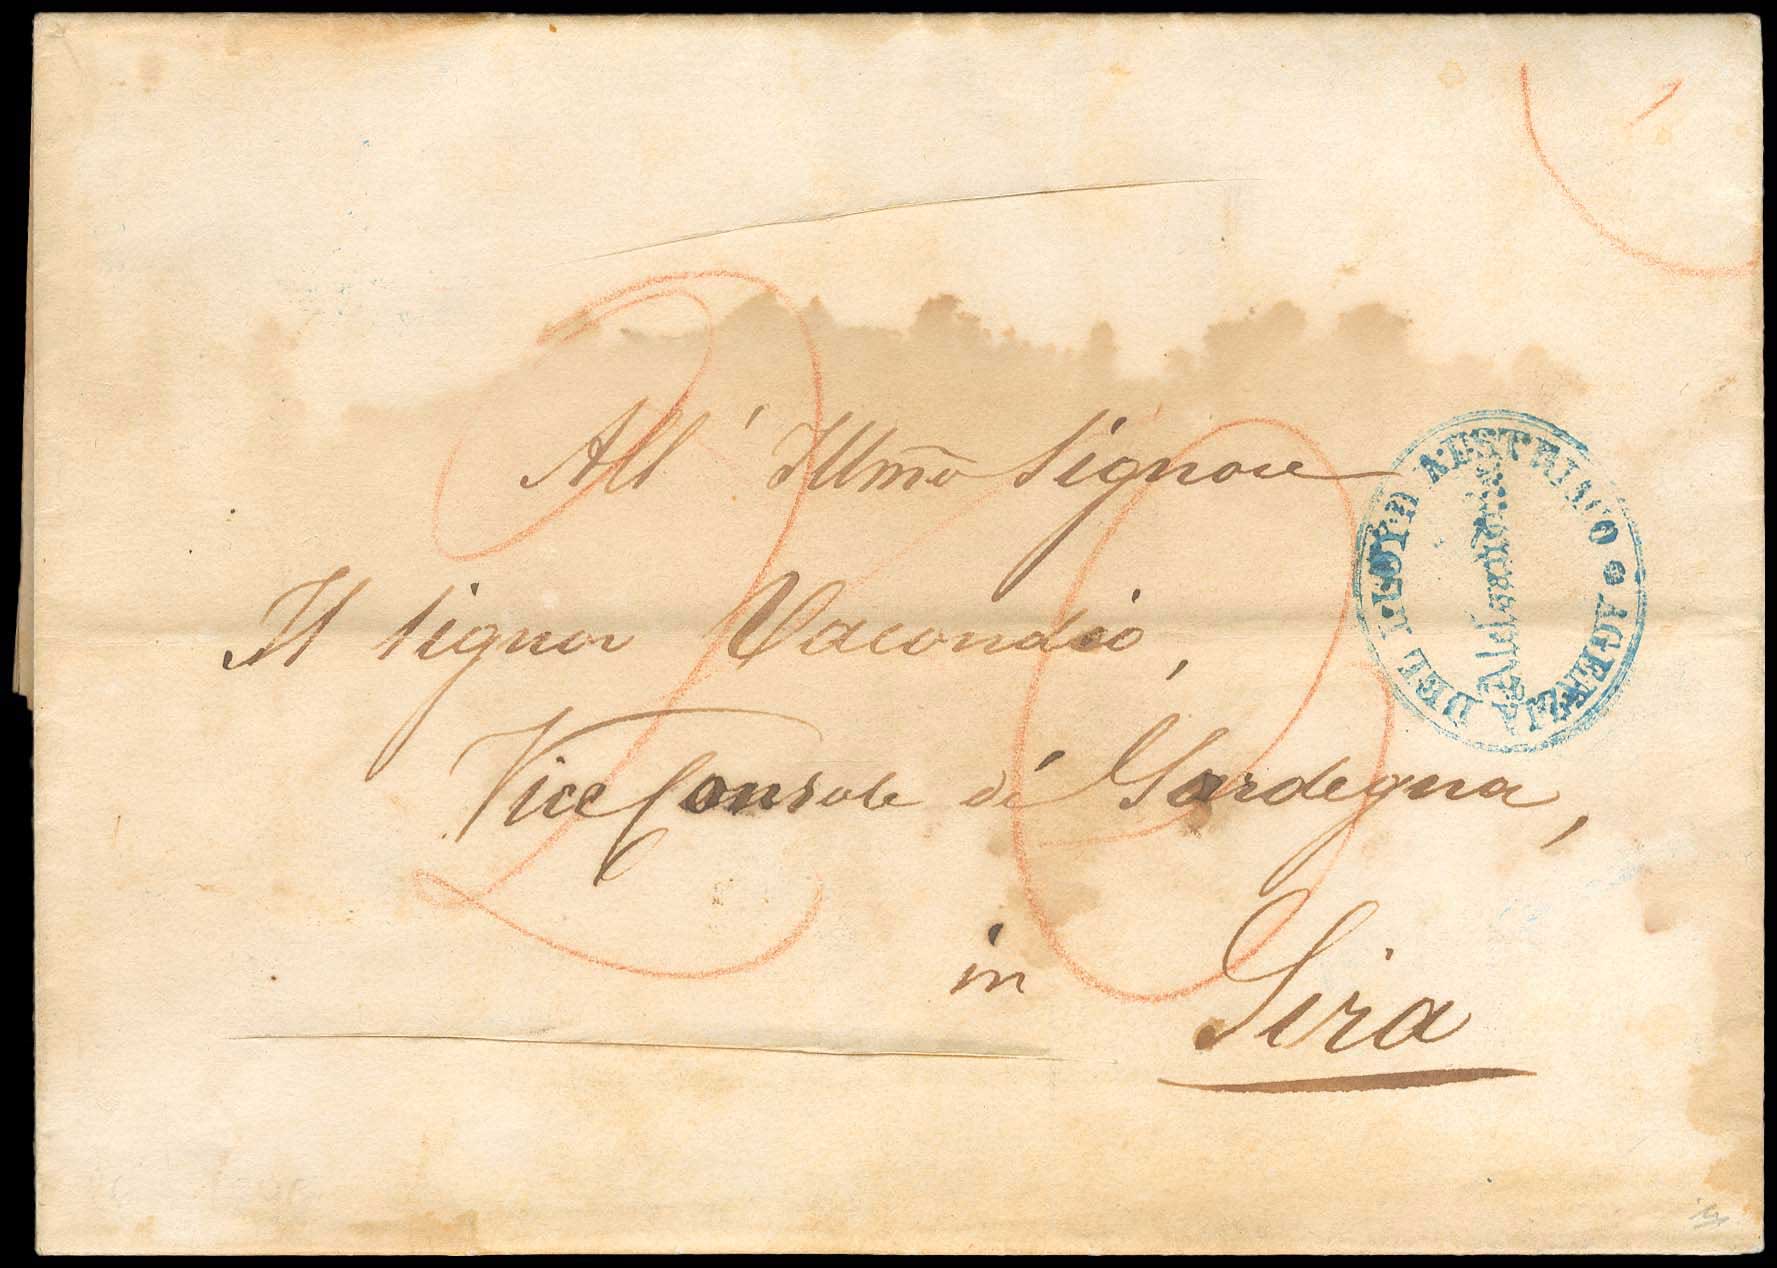 All' Illmo Signore
Il Signor Vacondio,
Vice Console di Sardegna,
in Sira
AGENZIA DEL LLOYD AUSTRIACO
Alessandria
20